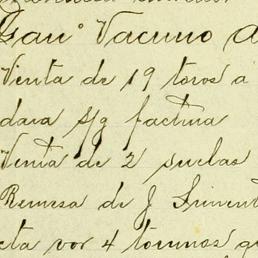 Gan° Vacuno a
Venta de 19 toros a
dara s/g factura
Venta de 2 suelas
Remesa de J
cta por 4 tornos